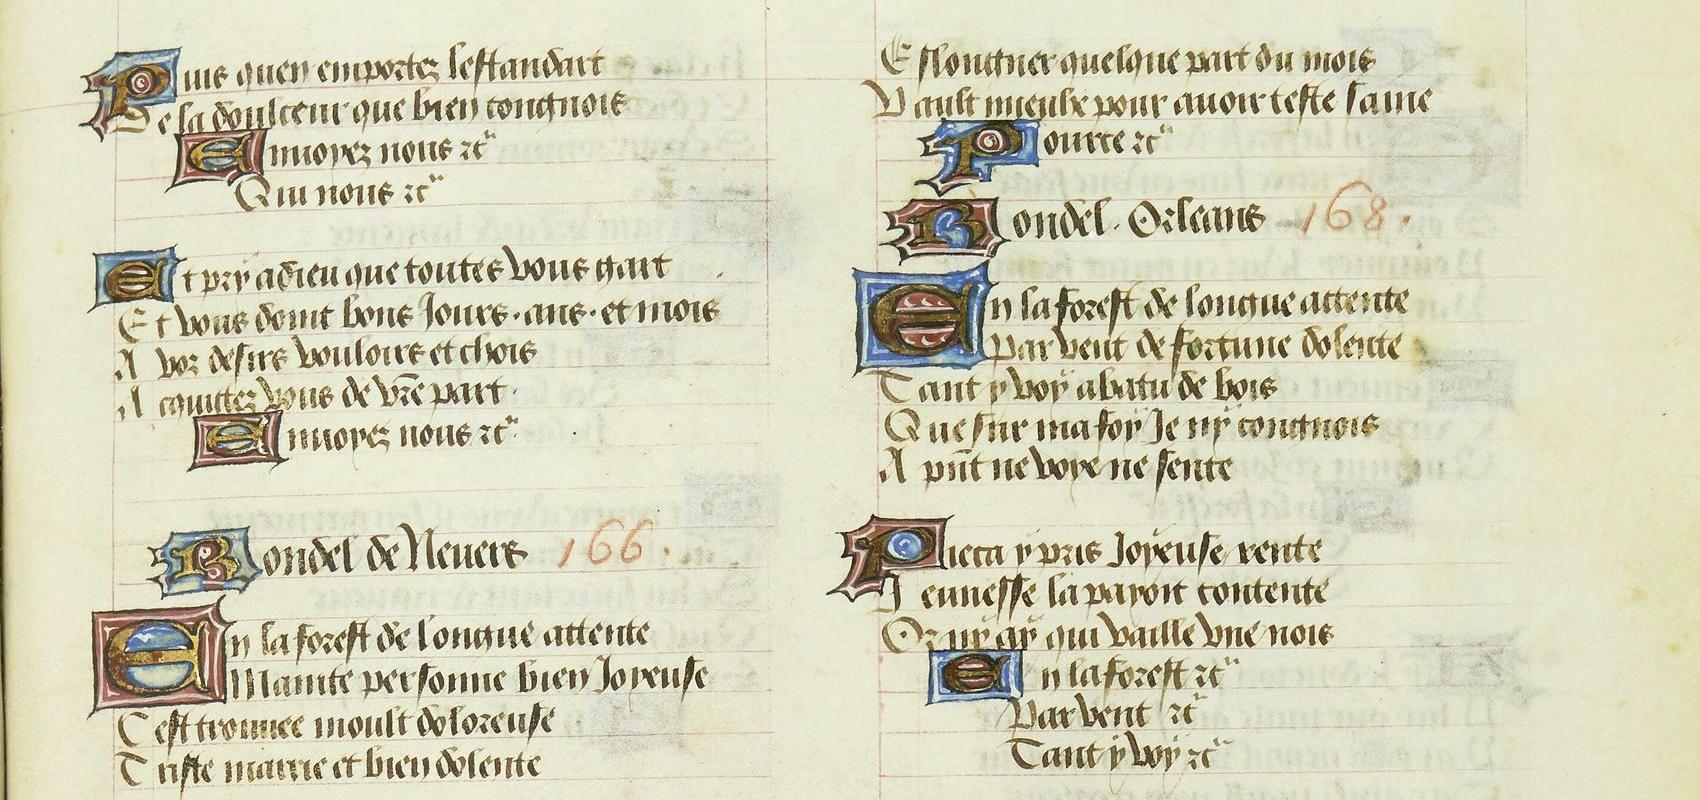 Puis quen emportez lestandart
De la doulceur que bien congnois
Enuoyez nous &c
Qui nous &c
Et pry adieu que toutes vous gart
Et vous doint bons Jours. ans. et mois
A voz desirs vouloirs et chois
Acquittez vous de vre part
Enuoyez nous &c
Rondel de Neuers 166.
En la forest de longue attente
Mainte personne bien Joyeuse
Cest trouuee moult doloreuse
Triste marrie et bien dolente
Eslongner quelque part du mois
Vault mieulx pour auoir teste saine
Pource &c
Rondel. Orleans 168.
En la forest de longue attente
Par vent de fortune dolente
Tant y voy abatu de bois
Que sur ma foy Je ny congnois
A pnt ne voye ne sente
Pieca y pris Joyeuse rente
Jeunesse la payoit contente
Or ny ay qui vaille vne nois
En la forest &c
Par vent &c
Tant y voy &c